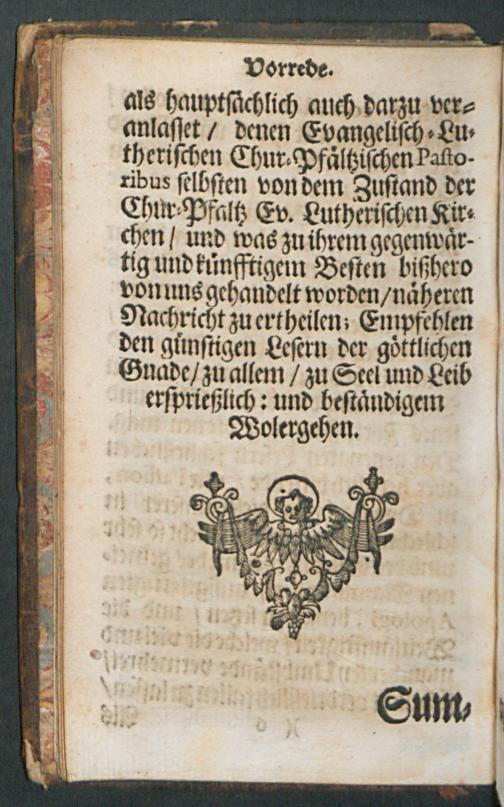 Vorrede.
als hauptsächlich auch darzu ver⸗
anlasset / denen Evangelisch⸗Lu⸗
therischen Chur⸗Pfältzischen Pasto-
ribus selbsten von dem Zustand der
Chur⸗Pfaltz Ev. Lutherischen Kir⸗
chen / und was zu ihrem gegenwär⸗
tig und künfftigem Besten bißhero
von uns gehandelt worden / näheren
Nachricht zu ertheilen; Empfehlen
den günstigen Lesern der göttlichen
Gnade / zu allem / zu Seel und Leib
ersprießlich: und beständigem
Wolergehen.
Sum⸗